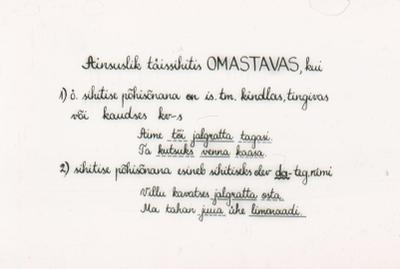 Ainsuslik täissihitis OMASTAVAS, kui
1) ö. sihitise põhisõnana on is. tm. kindlas, tingivas
või kaudses kv-s
Aime tõi jalgratta tagasi.
Ta kutsuks venna kaasa.
2) sihitise põhisõnana esineb sihitiseks olev da-teg.nimi
Villu kavatses jalgratta osta.
Ma tahan juua ühe limonaadi.